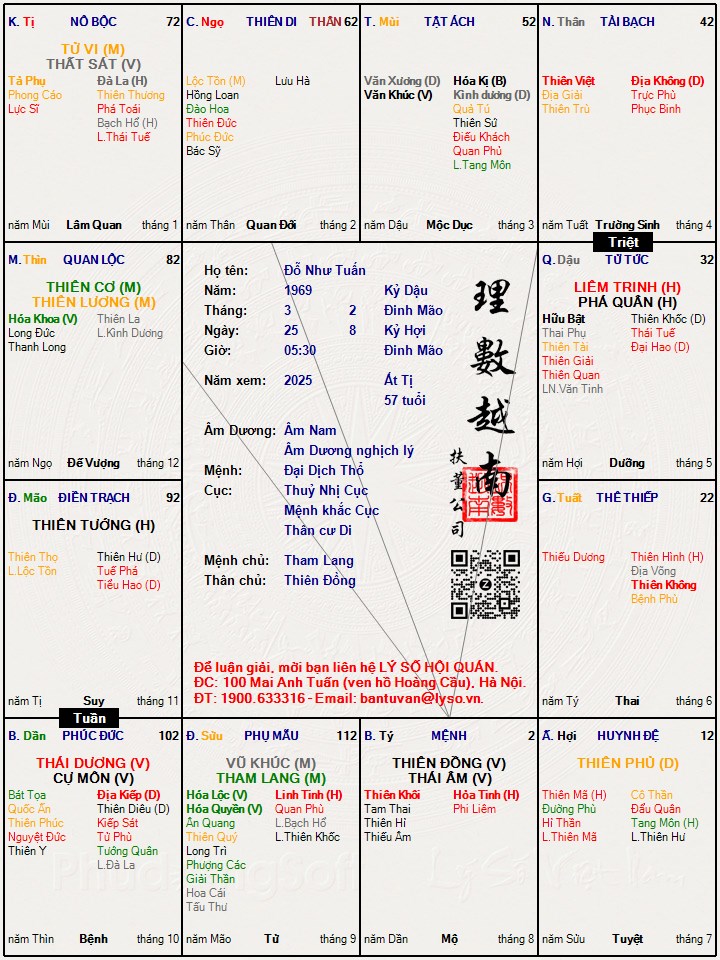 K. Tị NÔ BỘC 72
TỬ VI (M)
THẤT SÁT (V)
Tả Phụ Đà La (H)
Phong Cáo Thiên Thương
Lực Sĩ Phá Toái
Bạch Hổ (H)
L.Thái Tuế
năm Mùi Lâm Quan tháng 1
C. Ngọ THIÊN DI THÂN 62
Lộc Tồn (M) Lưu Hà
Hồng Loan
Đào Hoa
Thiên Đức
Phúc Đức
Bác Sỹ
năm Thân Quan Đới tháng 2
T. Mùi TẬT ÁCH 52
Văn Xương (D) Hóa Kị (B)
Văn Khúc (V) Kình dương (D)
Quả Tú
Thiên Sứ
Điếu Khách
Quan Phủ
L.Tang Môn
năm Dậu Mộc Dục tháng 3
N. Thân TÀI BẠCH 42
Thiên Việt Địa Không (D)
Địa Giải Trực Phù
Thiên Trù Phục Binh
năm Tuất Trường Sinh tháng 4
Triệt
M. Thìn QUAN LỘC 82
THIÊN CƠ (M)
THIÊN LƯƠNG (M)
Hóa Khoa (V) Thiên La
Long Đức L.Kình Dương
Thanh Long
năm Ngọ Đế Vượng tháng 12
Họ tên: Đỗ Như Tuấn
Năm: 1969 Kỷ Dậu
Tháng: 3 2 Đinh Mão
Ngày: 25 8 Kỷ Hợi
Giờ: 05:30 Đinh Mão
Năm xem: 2025 Ất Tị
57 tuổi
Âm Dương: Âm Nam
Âm Dương nghịch lý
Mệnh: Đại Dịch Thổ
Cục: Thuỷ Nhị Cục
Mệnh khắc Cục
Thân cư Di
Mệnh chủ: Tham Lang
Thân chủ: Thiên Đồng
理數越南
扶董公司
Z
Để luận giải, mời bạn liên hệ LÝ SỐ HỘI QUÁN.
ĐC: 100 Mai Anh Tuấn (ven hồ Hoàng Cầu), Hà Nội.
ĐT: 1900.633316 - Email: bantuvan@lyso.vn.
Q. Dậu TỬ TỨC 32
LIÊM TRINH (H)
PHÁ QUÂN (H)
Hữu Bật Thiên Khốc (D)
Thai Phụ Thái Tuế
Thiên Tài Đại Hao (D)
Thiên Giải
Thiên Quan
LN.Văn Tinh
năm Hợi Dưỡng tháng 5
Đ. Mão ĐIỀN TRẠCH 92
THIÊN TƯỚNG (H)
Thiên Thọ Thiên Hư (D)
L.Lộc Tồn Tuế Phá
Tiểu Hao (D)
năm Tị Suy tháng 11
G. Tuất THÊ THIẾP 22
Thiếu Dương Thiên Hình (H)
Địa Võng
Thiên Không
Bệnh Phù
năm Tý Thai tháng 6
Tuần
B. Dần PHÚC ĐỨC 102
THÁI DƯƠNG (V)
CỰ MÔN (V)
Bát Tọa Địa Kiếp (D)
Quốc Ấn Thiên Diêu (D)
Thiên Phúc Kiếp Sát
Nguyệt Đức Tử Phù
Thiên Y Tướng Quân
L.Đà La
năm Thìn Bệnh tháng 10
Đ. Sửu PHỤ MẪU 112
VŨ KHÚC (M)
THAM LANG (M)
Hóa Lộc (V) Linh Tinh (H)
Hóa Quyền (V) Quan Phù
Ân Quang L.Bạch Hổ
Thiên Quý L.Thiên Khốc
Long Trì
Phượng Các
Giải Thần
Hoa Cái
Tấu Thư
năm Mão Tử tháng 9
B. Tý MỆNH 2
THIÊN ĐỒNG (V)
THÁI ÂM (V)
Thiên Khôi Hỏa Tinh (H)
Tam Thai Phi Liêm
Thiên Hỉ
Thiếu Âm
năm Dần Mộ tháng 8
Ấ. Hợi HUYNH ĐỆ 12
THIÊN PHỦ (D)
Thiên Mã (H) Cô Thần
Đường Phù Đẩu Quân
Hỉ Thần Tang Môn (H)
L.Thiên Mã L.Thiên Hư
năm Sửu Tuyệt tháng 7